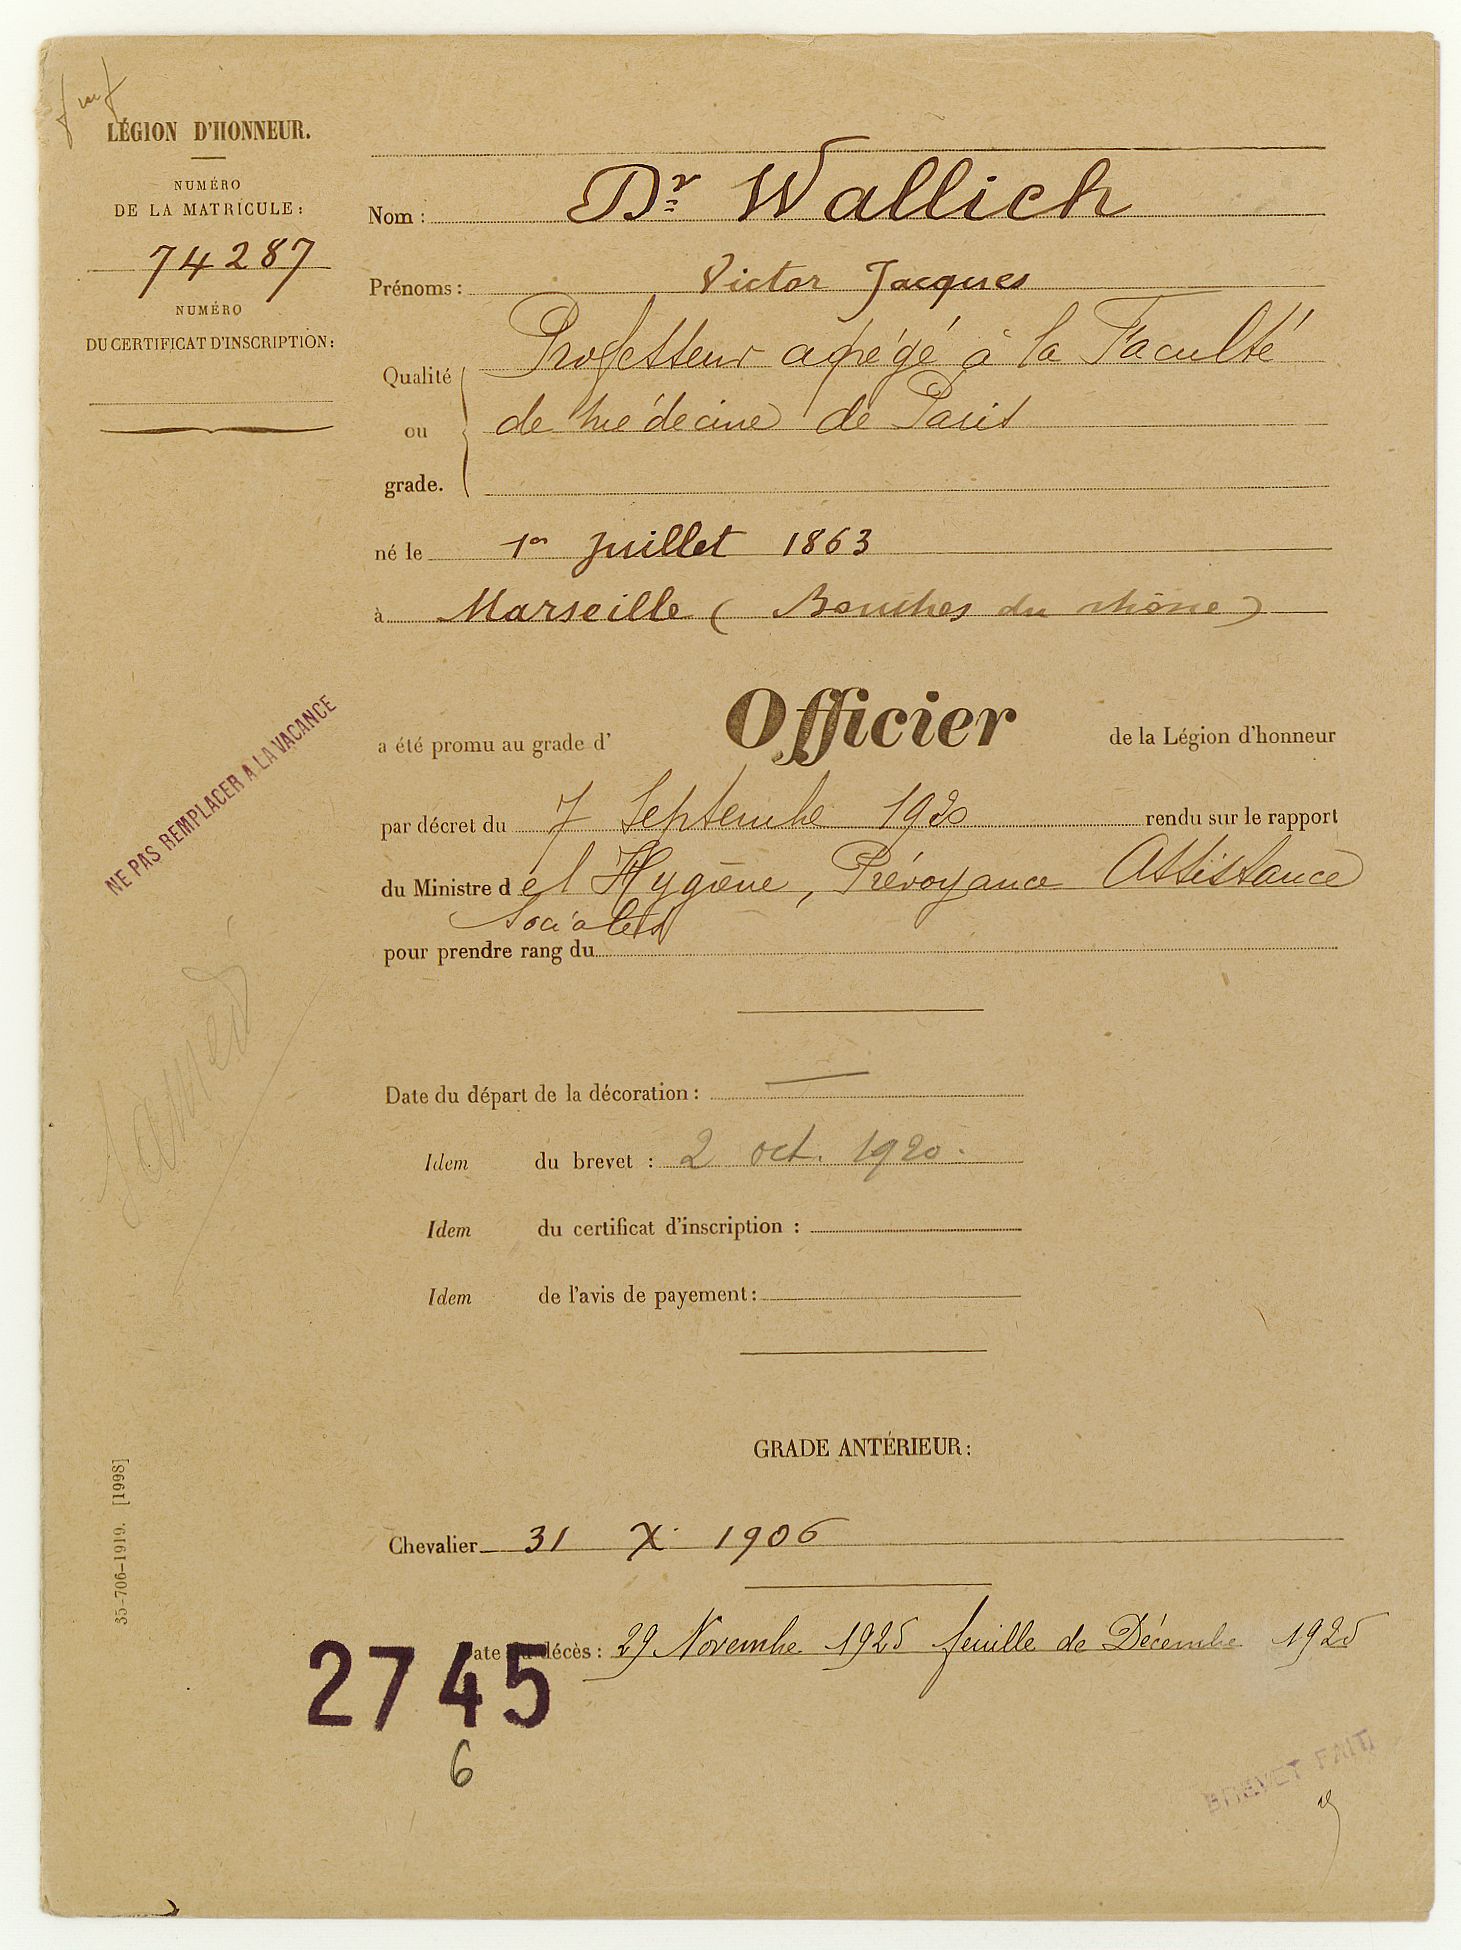 LÉGION D'HONNEUR.
NUMÉRO
DE LA MATRICULE :
74287
NUMÉRO
DU CERTIFICAT D'INSCRIPTION :
Nom : Dr Wallich
Prénoms : Victor Jacques
Qualité ou grade. Professeur agrégé à la Faculté
de médecine de Paris
né le 1er Juillet 1863
à Marseille (Bouches du rhône)
NE PAS REMPLACER A LA VACANCE
a été promu au grade d' Officier de la Légion d'honneur
par décret du 7 Septembre 1920 rendu sur le rapport
du Ministre d el Hygiène, Prévoyance Assistance
Sociales
pour prendre rang du
Date du départ de la décoration : —
Idem du brevet : 2 oct. 1920.
Idem du certificat d'inscription :
Idem de l'avis de payement :
GRADE ANTÉRIEUR :
Chevalier 31 X. 1906
Date du décès : 29 Novembre 1925 feuille de Décembre 1925
2745
6
BREVET FAIT
35-706-1919. [1998]